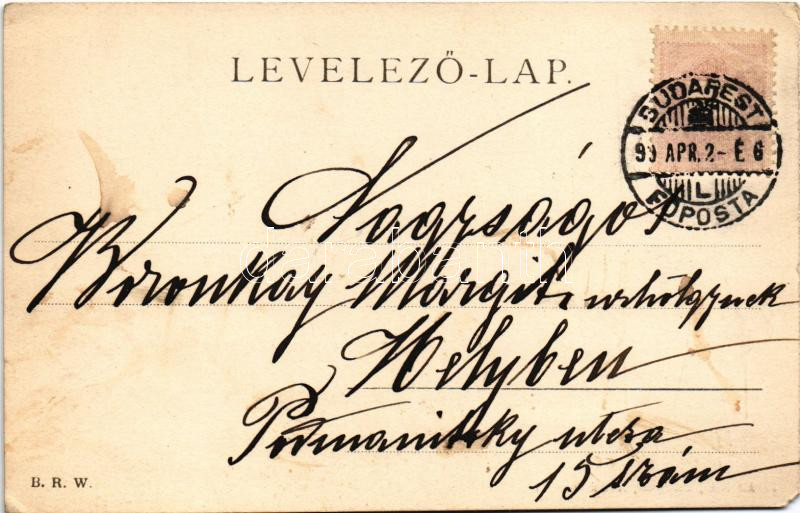 LEVELEZŐ-LAP.
BUDAPEST
99 APR. 2- É 6
L
FŐPOSTA
Nagyságos
Boronkay Margit urhölgynek
Helyben
Podmaniczky utcza
15 szám
B. R. W.
darabanth